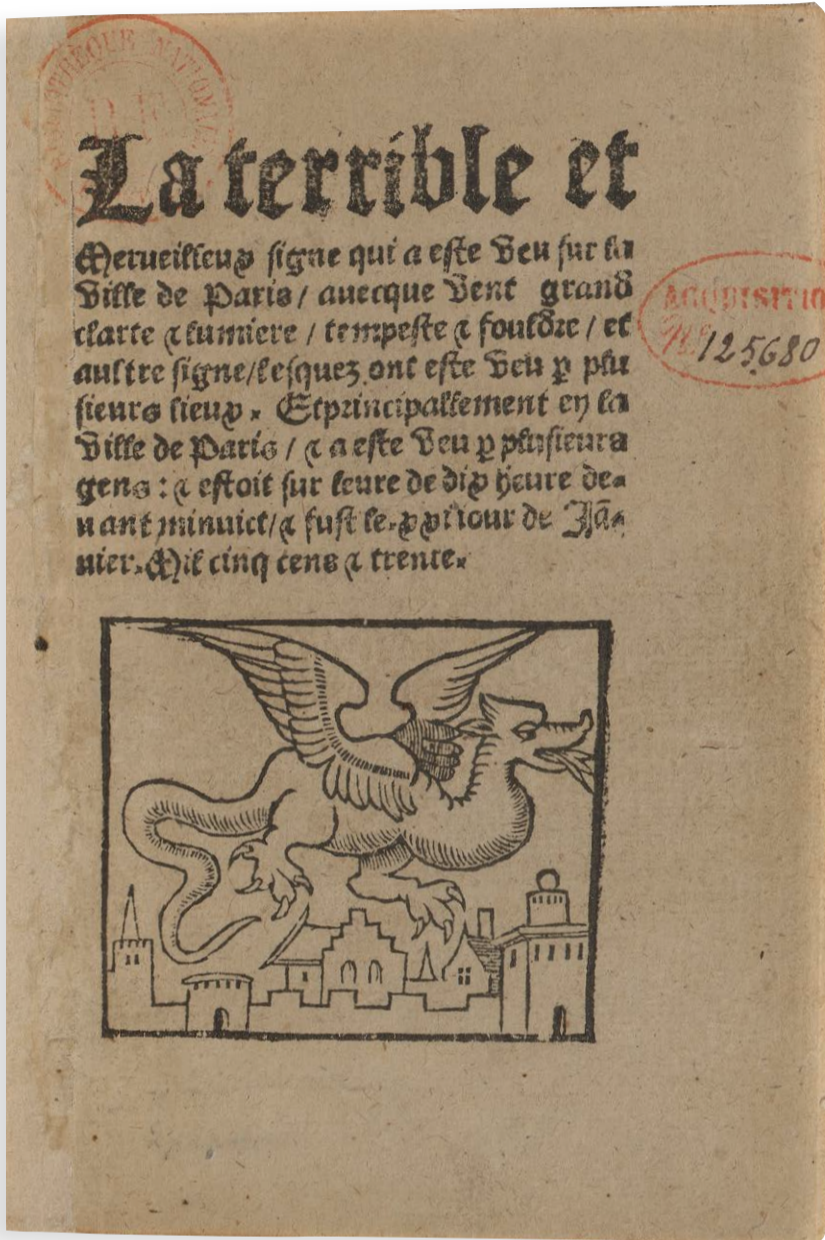 BIBLIOTHEQUE NATIONALE
La terrible et
Merueilleux signe qui a este veu sur la
ville de Paris / auecque vent grand
clarte & lumiere / tempeste & fouldre / et
aultre signe / lesquez ont este veu p̱ plu
sieurs lieux. Et principallement en la
ville de Paris / & a este veu p̱ plusieurs
gens : & estoit sur leure de dix heure de-
uant minuict / & fust le. iour de Jã-
uier. Mil cinq cens & trente.
ACQUISITIO
125680